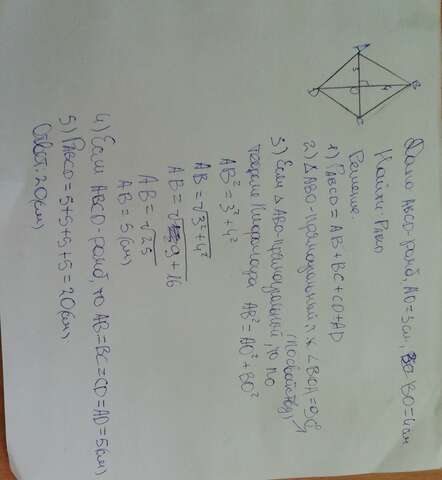 Дано ABCD-ромб, AO=3см, BO=4см
Найти PABCD
A
B
C
D
O
3
4
Решение:
1) PABCD = AB+BC+CD+AD
2) △ABO-прямоугольный, т.к. ∠BOA=90°
(по свойству)
3) Если △ABO-прямоугольный, то по
теореме Пифагора AB²=AO²+BO²
AB²=3²+4²
AB=√3²+4²
AB=√9+16
AB=√25
AB=5(см)
4) Если ABCD-ромб, то AB=BC=CD=AD=5(см)
5) PABCD=5+5+5+5=20(см)
Ответ: 20(см)